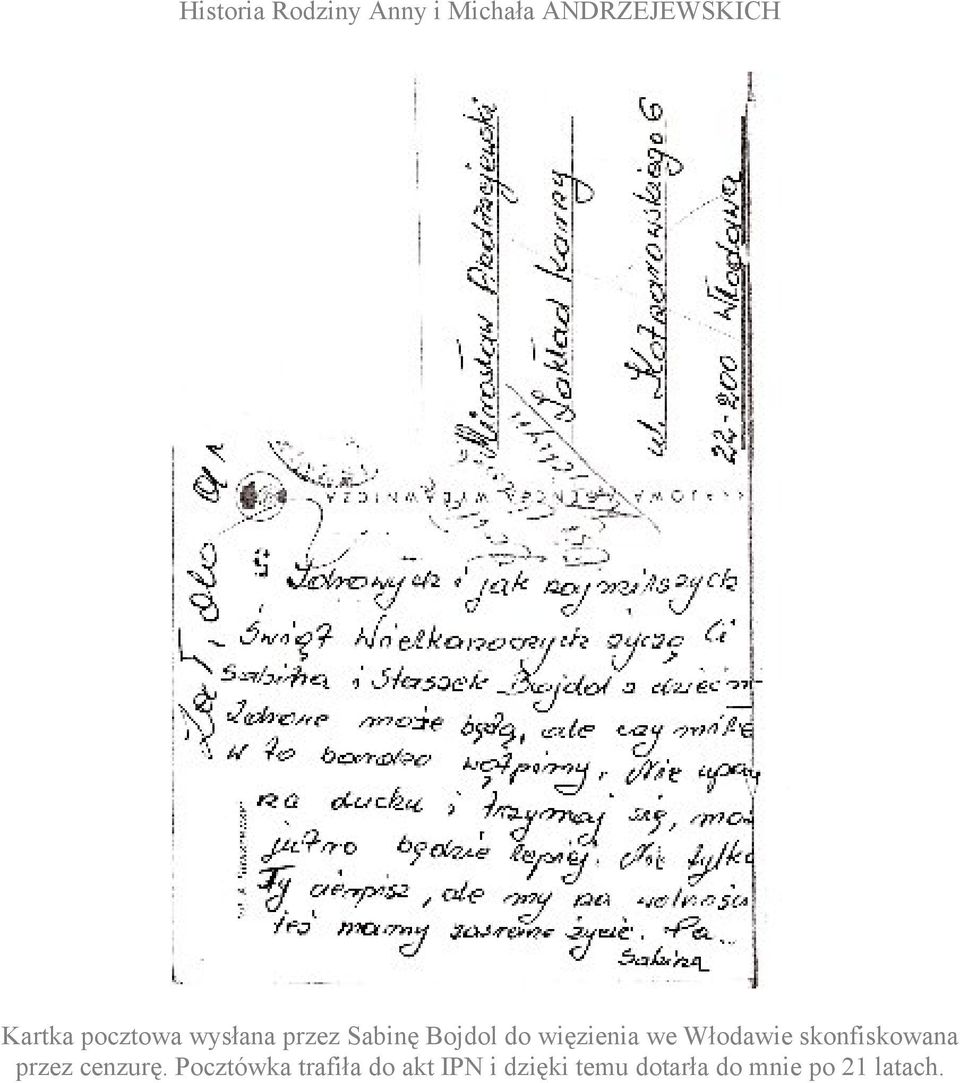 Historia Rodziny Anny i Michała ANDRZEJEWSKICH
Mirosław Andrzejewski
Zakład Karny
ul. Kotarowskiego 6
22-200 Włodawa
KRAJOWA AGENCJA WYDAWNICZA
Zdrowych i jak najmilszych
Świąt Wielkanocnych życzą Ci
Sabina i Staszek Bojdol z dziećm
Zdrowe może będą, ale czy miłe
w to bardzo wątpimy. Nie upa
na duchu i trzymaj się, moż
jutro będzie lepiej. Nie tylko
Ty cierpisz, ale my na wolności
też mamy zasrane życie. Pa...
Sabina
Kartka pocztowa wysłana przez Sabinę Bojdol do więzienia we Włodawie skonfiskowana
przez cenzurę. Pocztówka trafiła do akt IPN i dzięki temu dotarła do mnie po 21 latach.